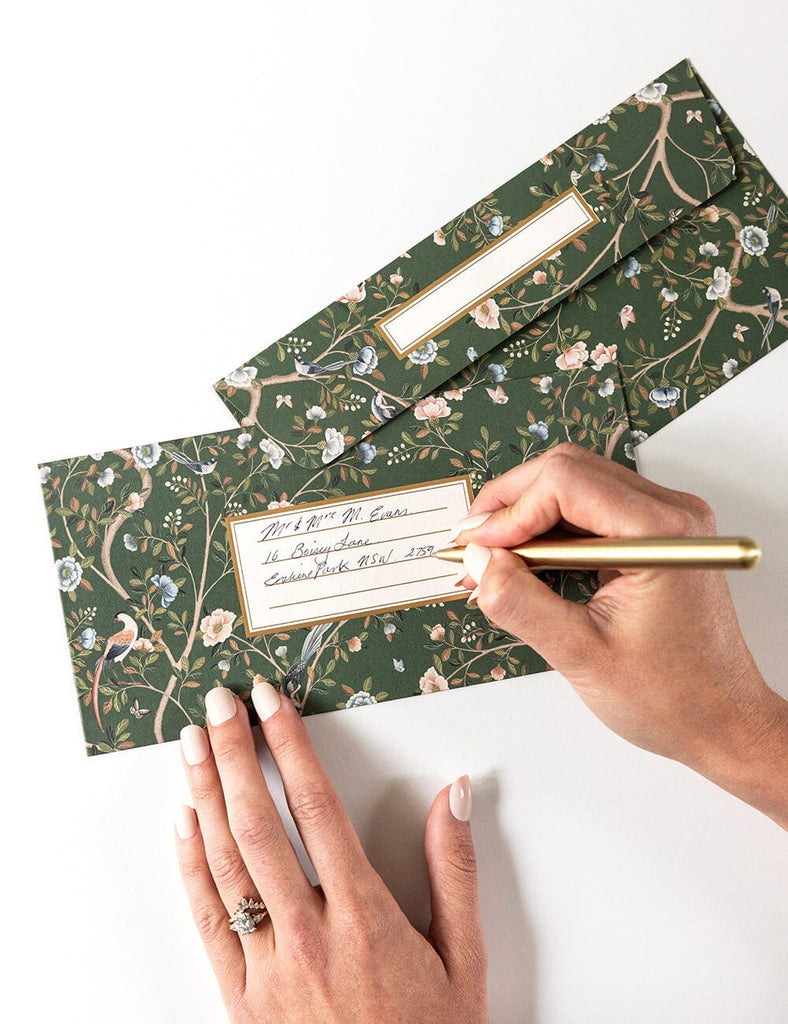 Mr & Mrs M. Evans
16 Boisey Lane
Erskine Park NSW 2759